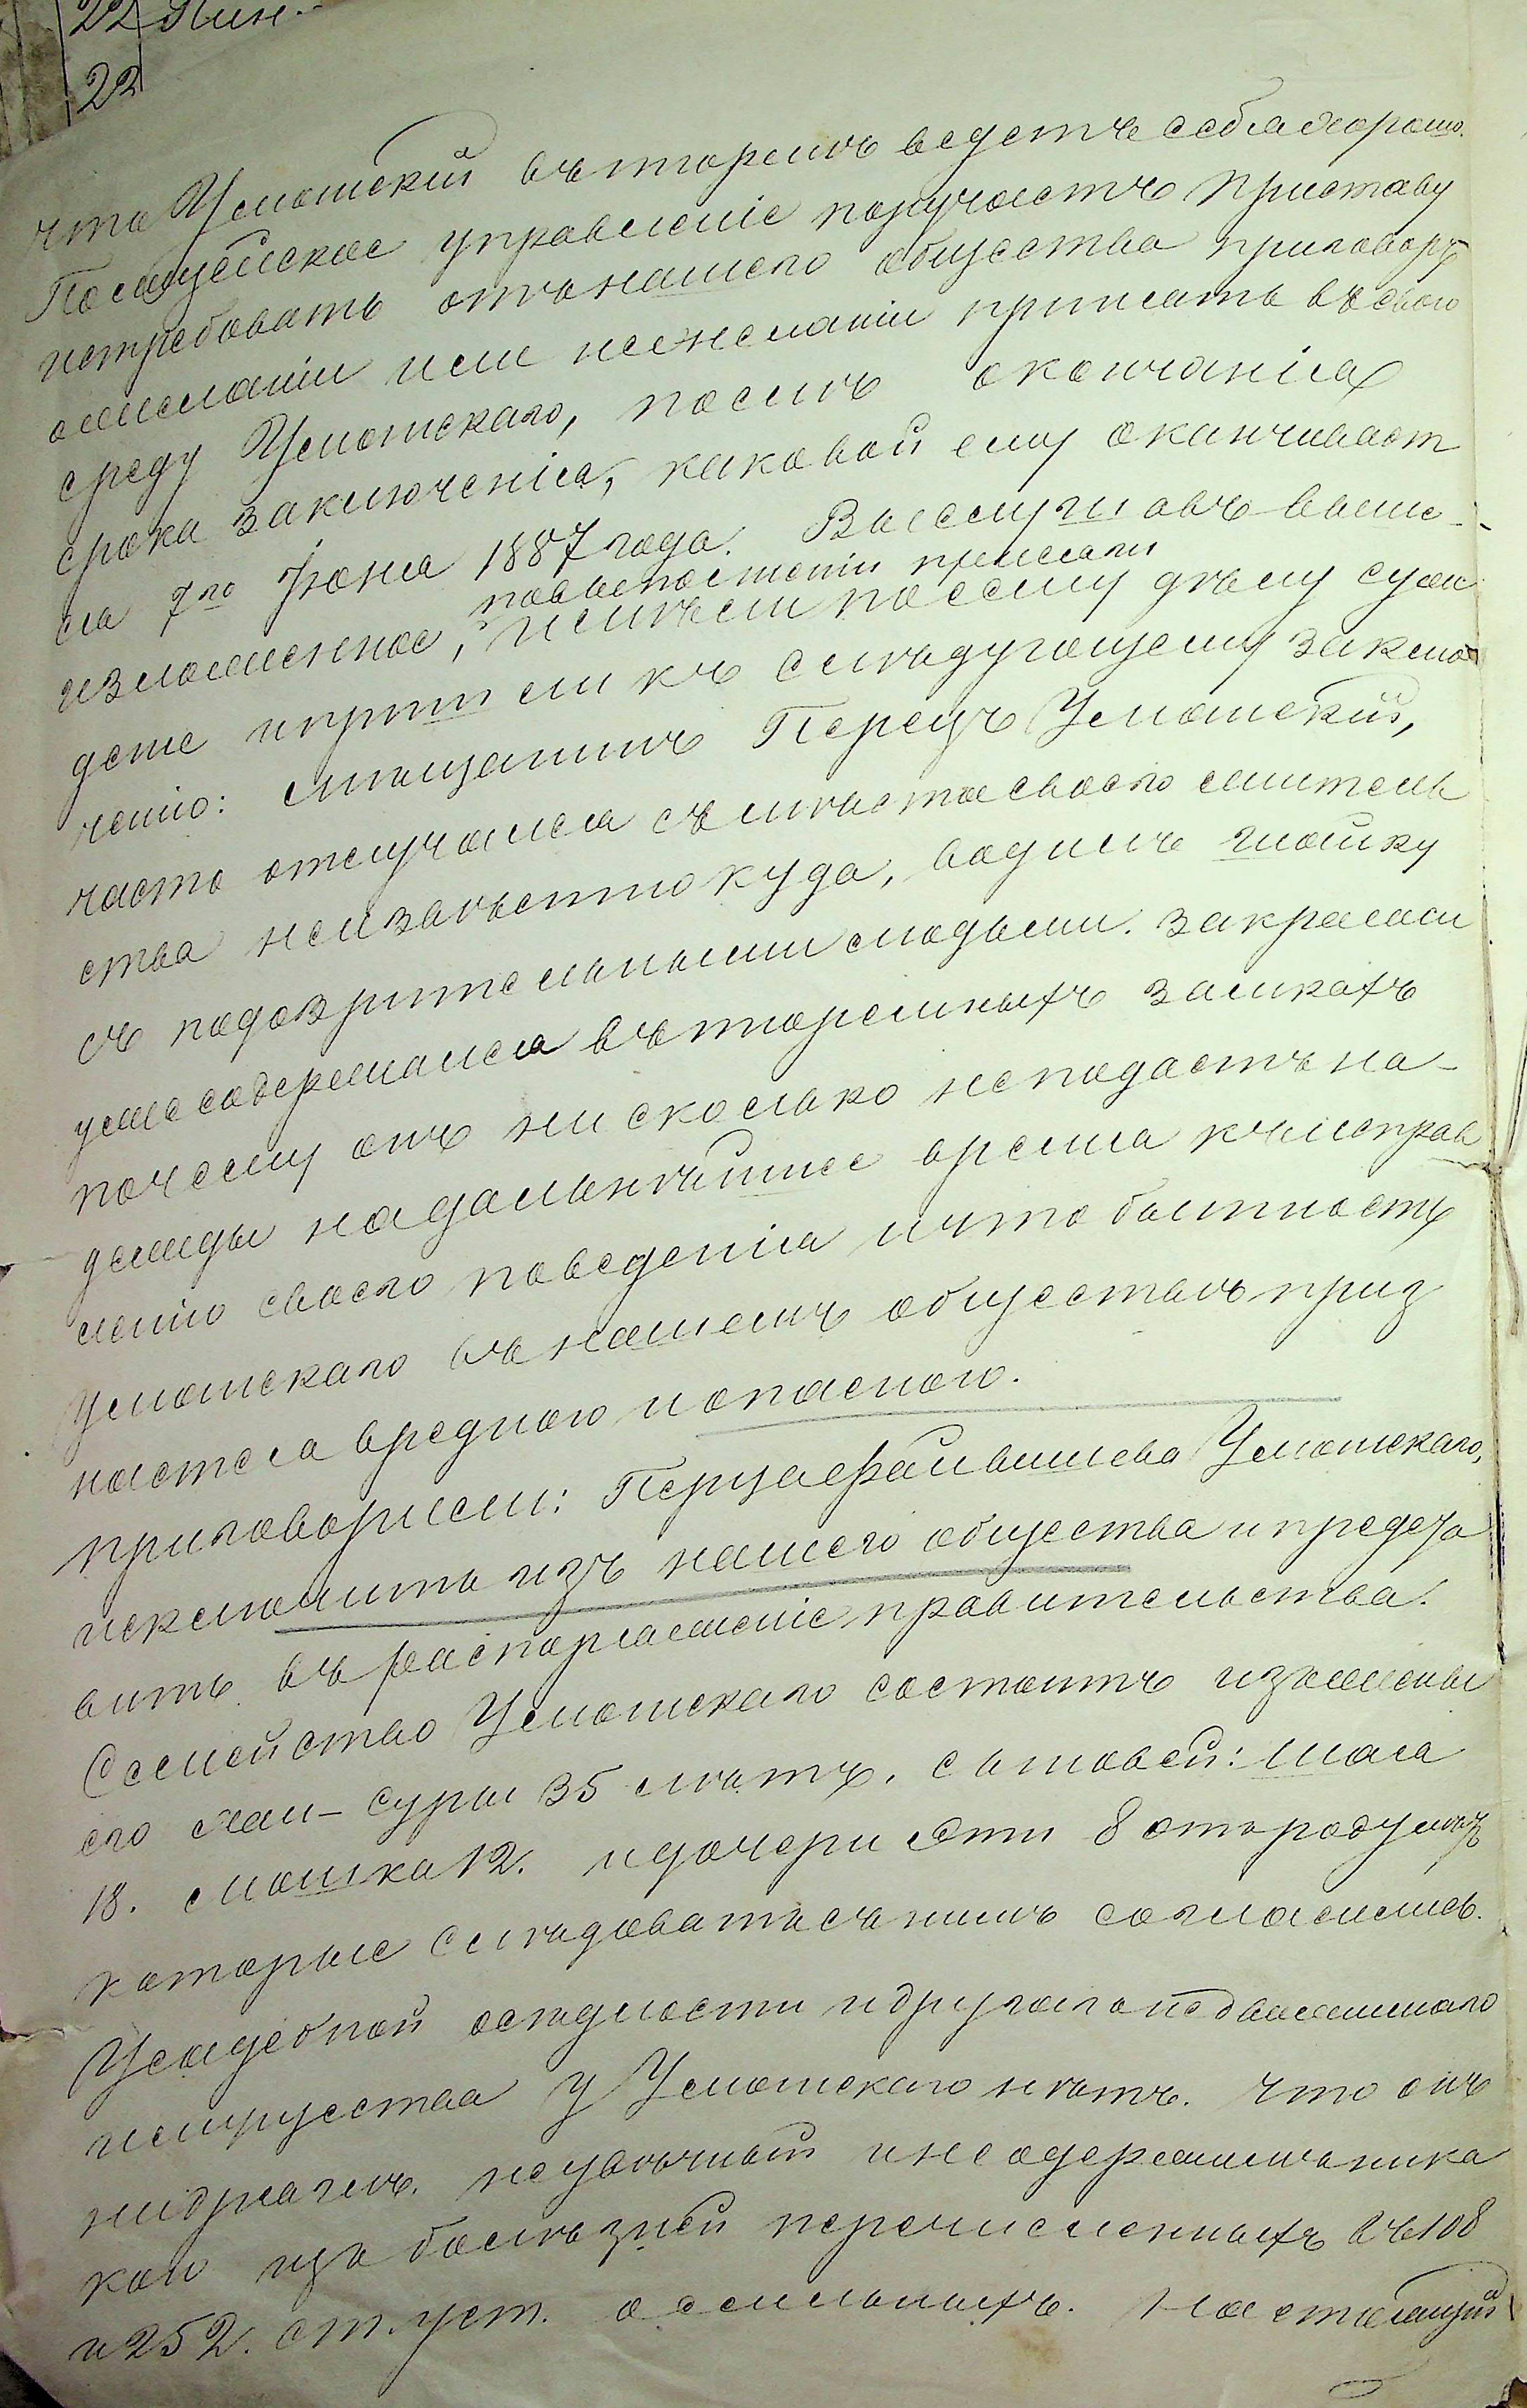 22 Пин.
22
что Уманскій въ тюрьмѣ ведетъ себя хорошо.
Полицейское управленіе поручаетъ приставу
истребовать отъ нашего общества приговоръ
о желаніи или нежеланіи принять въ свою
среду Уманскаго, послѣ окончанія
срока заключенія, каковой ему оканчивает
ся 7го Іюня 1887 года. Выслушавъ выше-
изложенное, имѣли по сему дѣлу сужд
по выпостшеніи
деніе и пришли къ слѣдующему заклю
ченію: мѣщанинъ Перецъ Уманскій,
часто отлучался съ мѣста своего житель
ства неизвѣстно куда, водилъ шайку
съ подозрительными людьми. за кражи
уже содержался въ тюремныхъ замкахъ
почему онъ нисколько не подаетъ на-
дежды на дальнѣйшее время къ исправ
ленію своего поведенія и что бытность
Уманскаго въ нашемъ обществѣ приз
нается вредною и опасною.
приговорили: Перца Файвишева Уманскаго,
исключить изъ нашего общества и предста
вить въ распоряженіе правительства.
Семейство Уманскаго состоитъ изъ жены
его Хаи-Суры 35 лѣтъ. сыновей:
18. Мошка 12. и дочери Эти 8 отъ роду лѣтъ
которые слѣдовать съ нимъ согласились.
Усадебной осѣдлости и другаго недвижимаго
имущества у Уманскаго нѣтъ. что онъ
не дряхлъ. неувѣчный и неодержимъ ника
кой изъ болѣзней перечисленныхъ въ 108
и 252. ст. уст. о ссыльныхъ. Настоящій